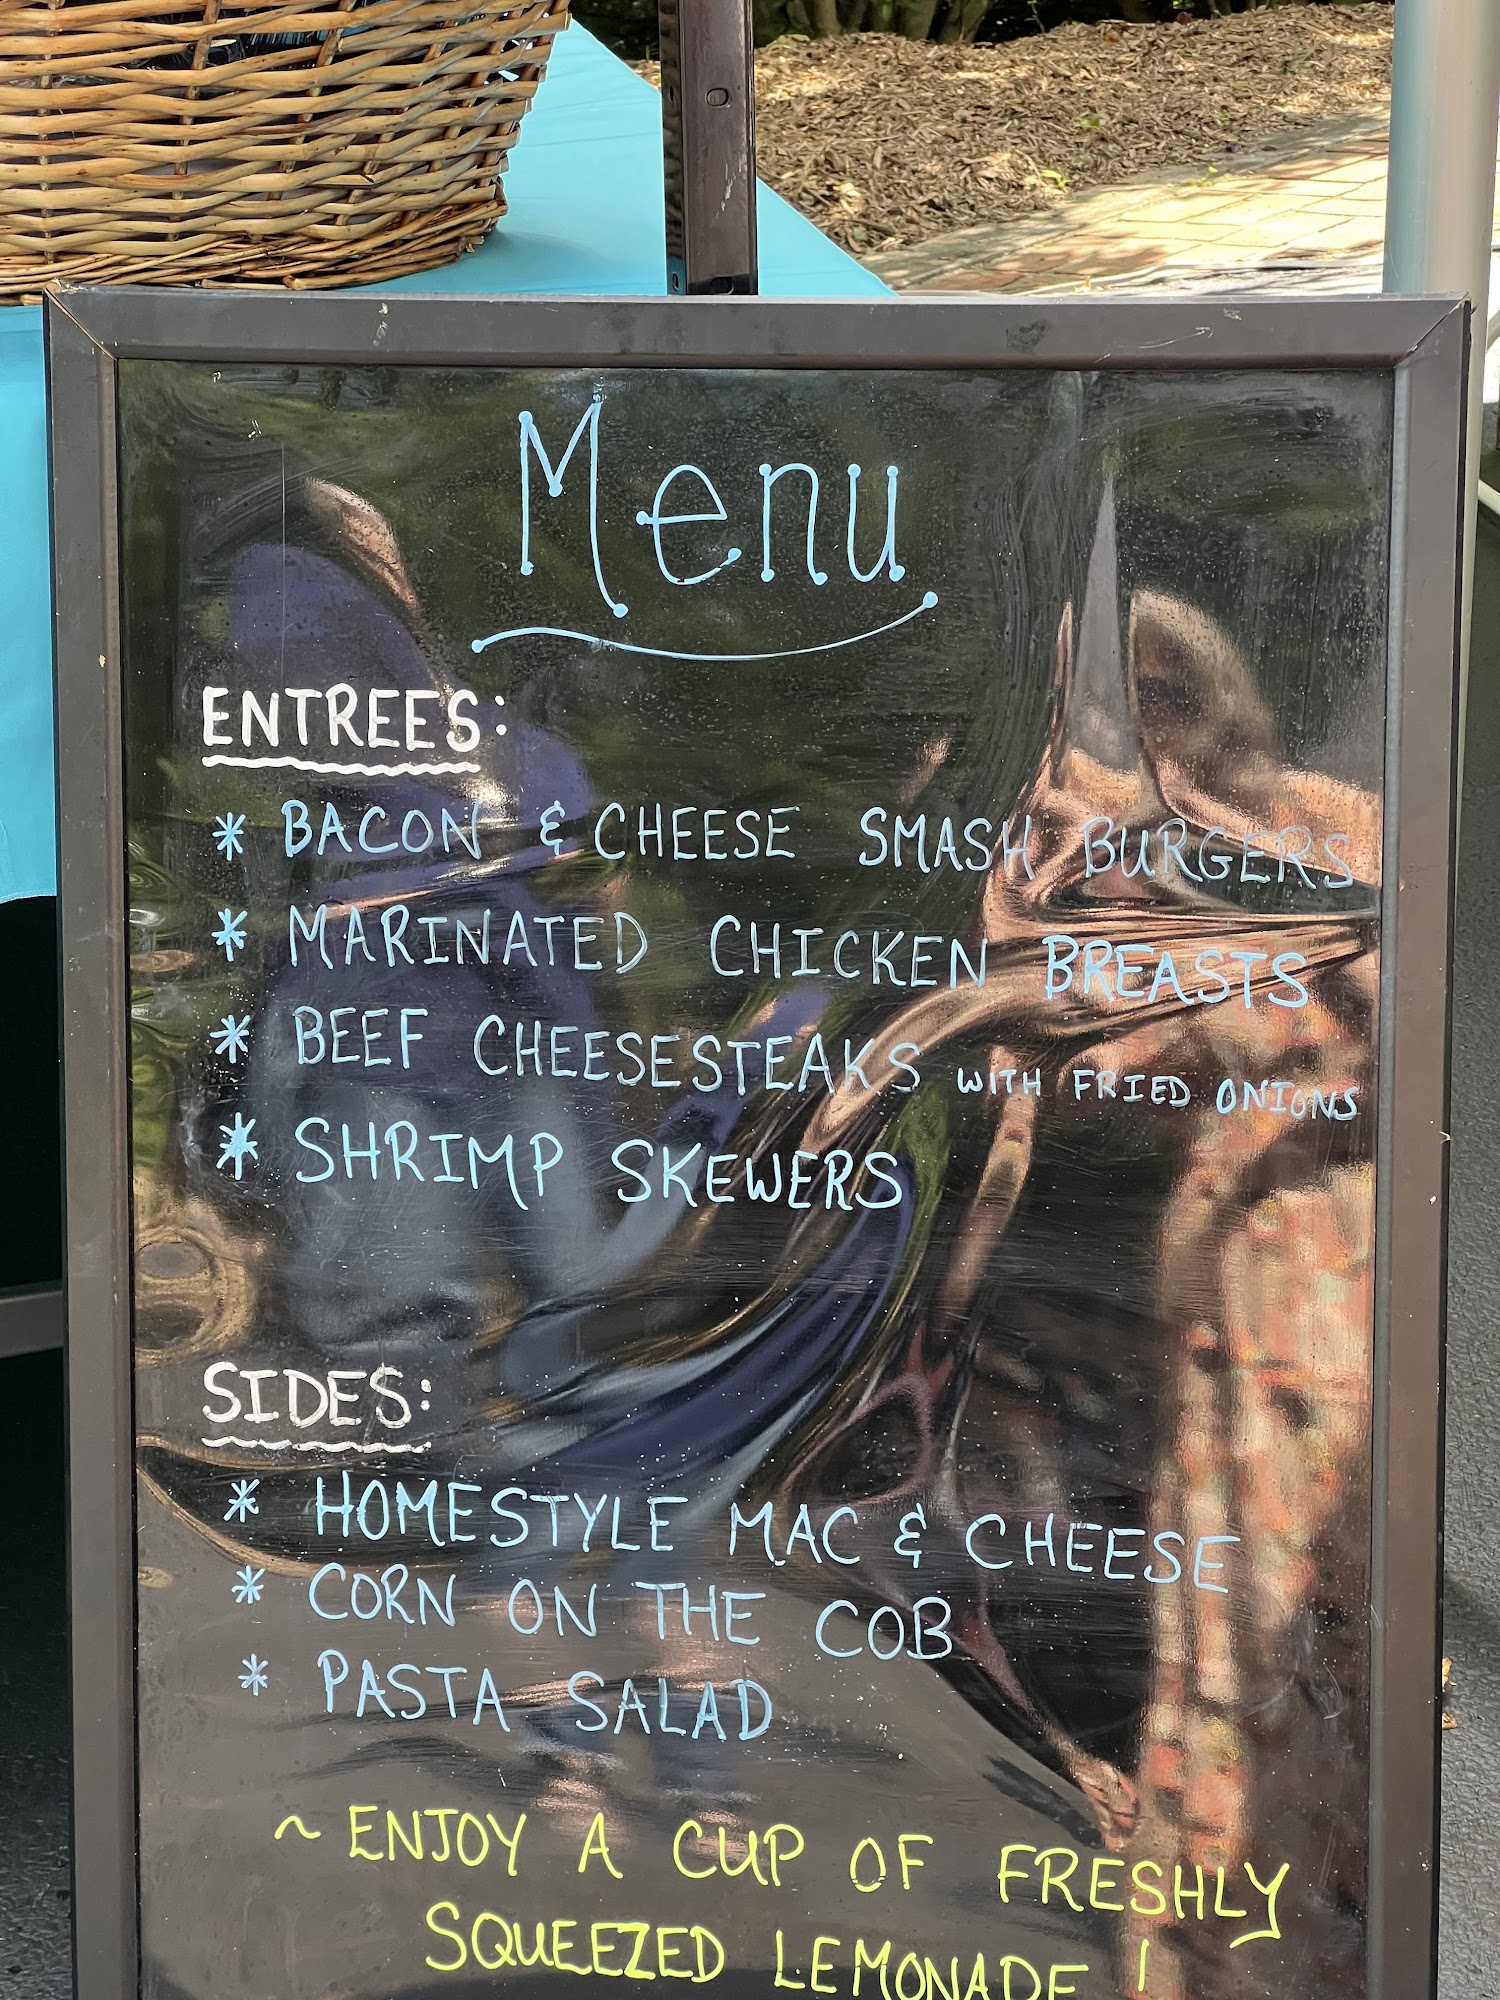 Menu
ENTREES:
* BACON & CHEESE SMASH BURGERS
* MARINATED CHICKEN BREASTS
* BEEF CHEESESTEAKS WITH FRIED ONIONS
* SHRIMP SKEWERS
SIDES:
* HOMESTYLE MAC & CHEESE
* CORN ON THE COB
* PASTA SALAD
~ ENJOY A CUP OF FRESHLY
SQUEEZED LEMONADE!